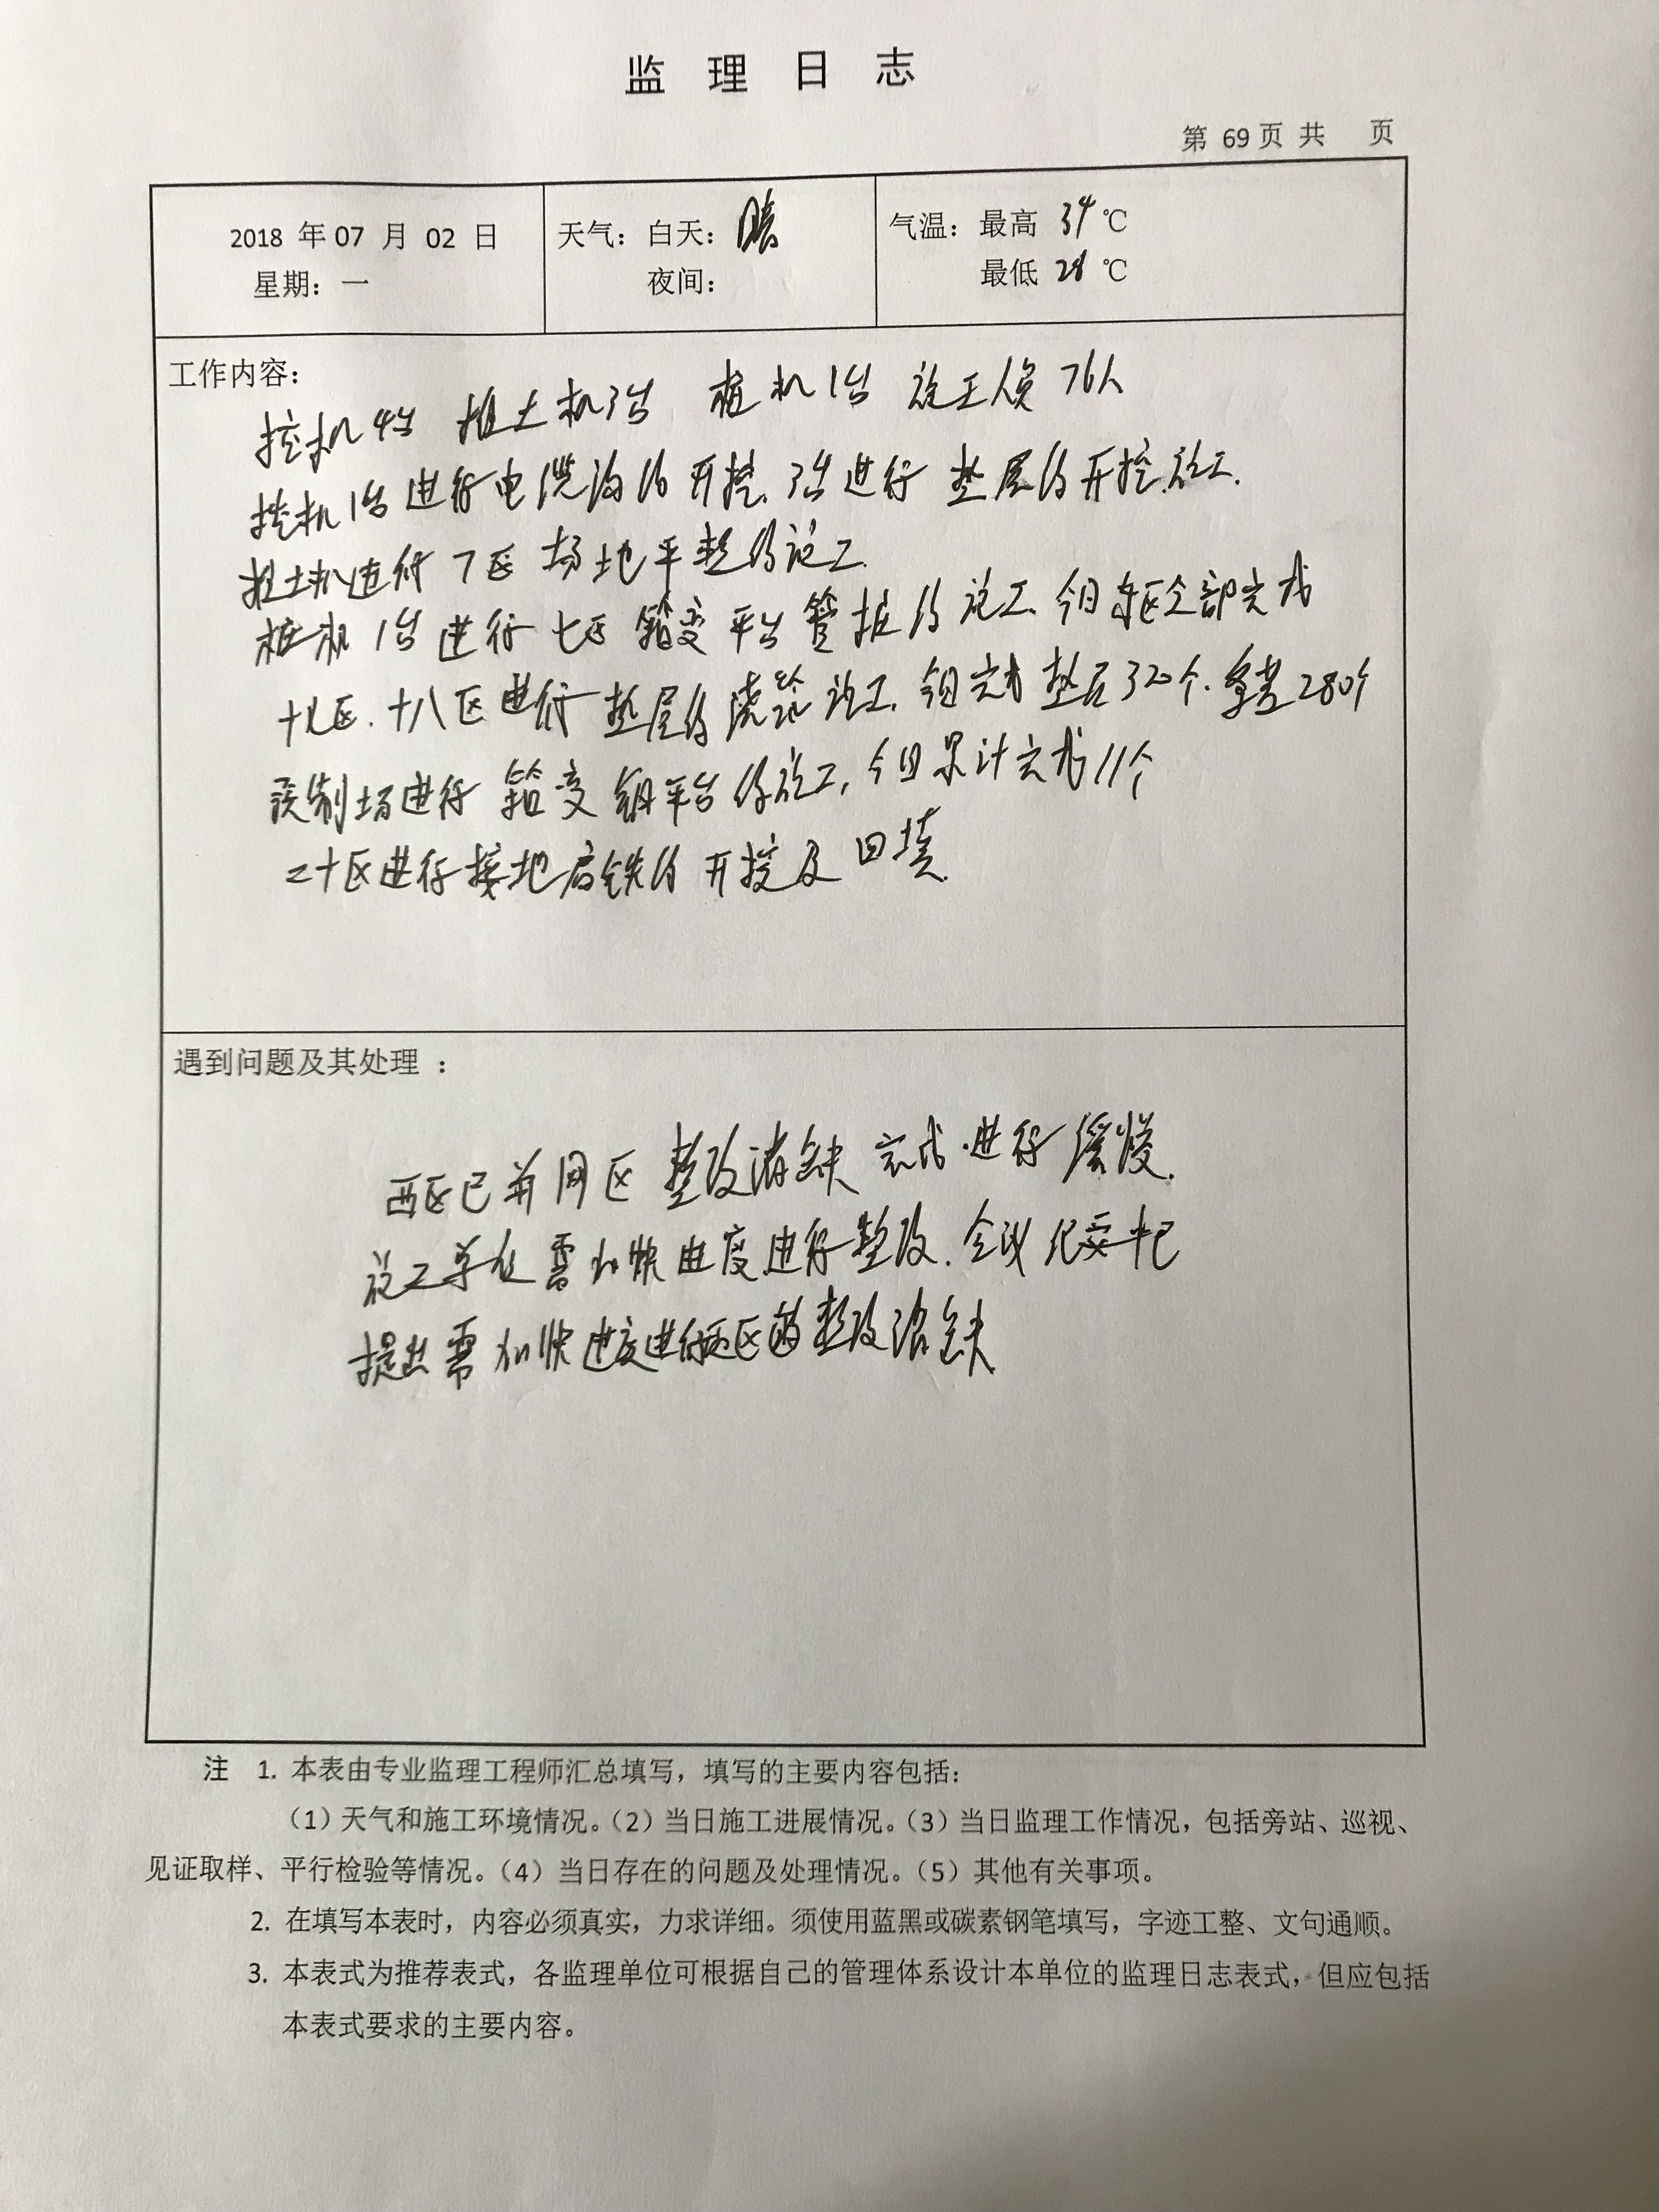 监 理 日 志
第 69 页 共 页
2018 年 07 月 02 日
星期：一
天气：白天：晴
夜间：
气温：最高 34 ℃
最低 28 ℃
工作内容：
挖机4台 推土机3台 桩机1台 施工人员76人
挖机1台进行电缆沟的开挖. 3台进行垫层的开挖施工.
推土机进行7区场地平整的施工.
桩机1台进行七区箱变平台管桩的施工. 今日 区全部完成
十九区. 十八区进行垫层的浇筑施工. 今日完成垫层320个. 280个
预制场进行箱变 平台的施工, 今日累计完成11个
二十区进行接地扁铁的开挖及回填.
遇到问题及其处理 ：
西区已并网区整改消缺完成.进行缓慢.
施工单位需加快进度进行整改. 会议纪要中已
提出需加快进度进行西区的整改消缺
注 1. 本表由专业监理工程师汇总填写，填写的主要内容包括：
（1）天气和施工环境情况。（2）当日施工进展情况。（3）当日监理工作情况，包括旁站、巡视、
见证取样、平行检验等情况。（4）当日存在的问题及处理情况。（5）其他有关事项。
2. 在填写本表时，内容必须真实，力求详细。须使用蓝黑或碳素钢笔填写，字迹工整、文句通顺。
3. 本表式为推荐表式，各监理单位可根据自己的管理体系设计本单位的监理日志表式，但应包括
本表式要求的主要内容。